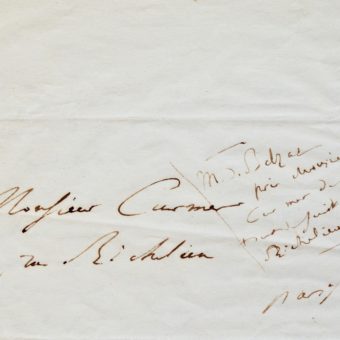 Monsieur Curmer
rue Richelieu
M. de Balzac
prie Monsieur
Curmer de
Richelieu
paris